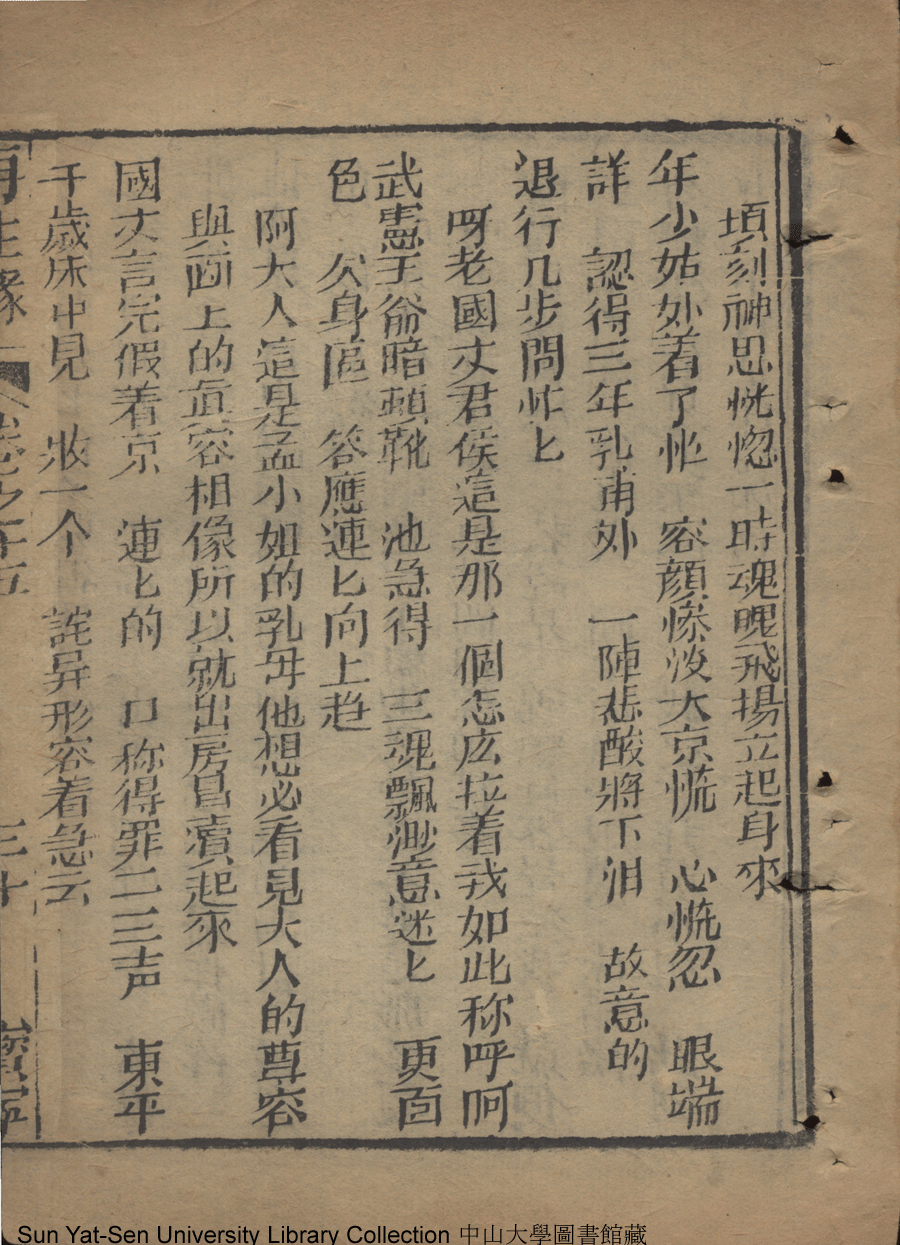 頃刻神思恍惚一時魂魄飛揚立起身來
年少姑外着了忙　容顏慘淡大京慌　心恍忽　眼端
詳　認得三年乳甫外　一陣悲酸將下泪　故意的
退行几步問忙匕
呀老國丈君侯這是那一個怎庅拉着我如此称呼呵
武憲王爺暗頓靴　池急得　三魂飄渺意迷匕　更面
色　欠身區　答應連匕向上趋
阿大人這是孟小姐的乳母他想必看見大人的尊容
與面上的真容相像所以就出房冒瀆起來
國丈言完假着京　連匕的　口称得罪二三声　東平
千歲床中見　妝一个　詫异形容着急云
再生緣　卷之十五　三十　寳寧
Sun Yat-Sen University Library Collection 中山大學圖書館藏